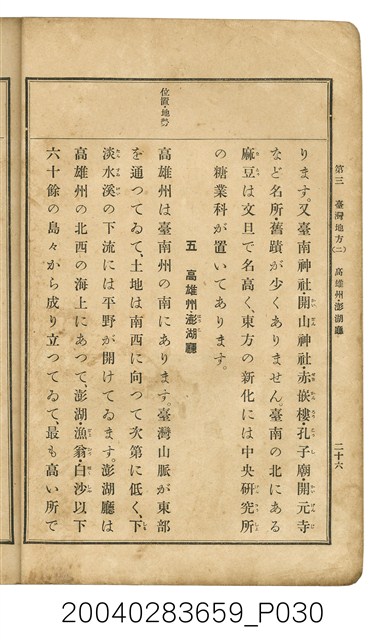 第三 臺灣地方(二) 高雄州澎湖廳 二十六
ります。又臺南神社・開山神社・赤嵌樓・孔子廟・開元寺
など名所・舊蹟が少くありません。臺南の北にある
麻豆は文旦で名高く、東方の新化には中央研究所
の糖業科が置いてあります。
五 高雄州・澎湖廳
位置・地勢
高雄州は臺南州の南にあります。臺灣山脈が東部
を通つてゐて、土地は南西に向つて次第に低く、下
淡水溪の下流には平野が開けてゐます。澎湖廳は
高雄州の北西の海上にあつて、澎湖・漁翁・白沙以下
六十餘の島々から成り立つてゐて、最も高い所で
20040283659_P030